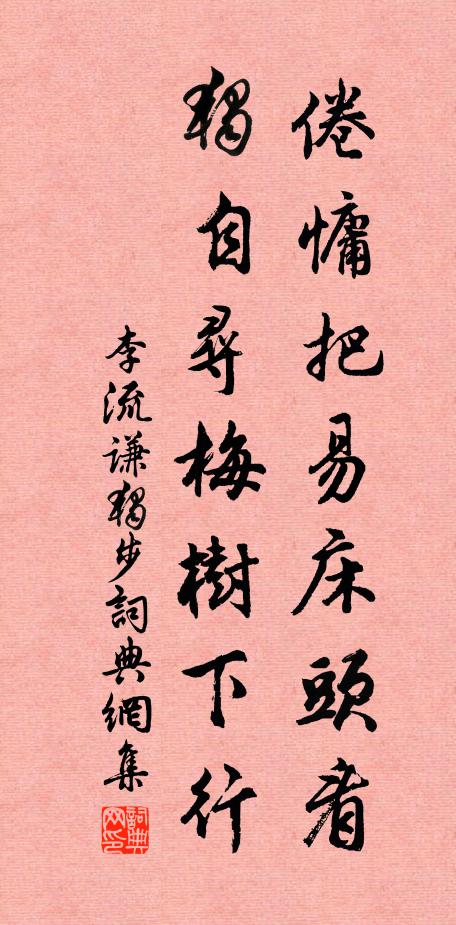 倦慵把易床頭看
獨自尋梅樹下行
李流谦獨步詞典網集
詞典网印